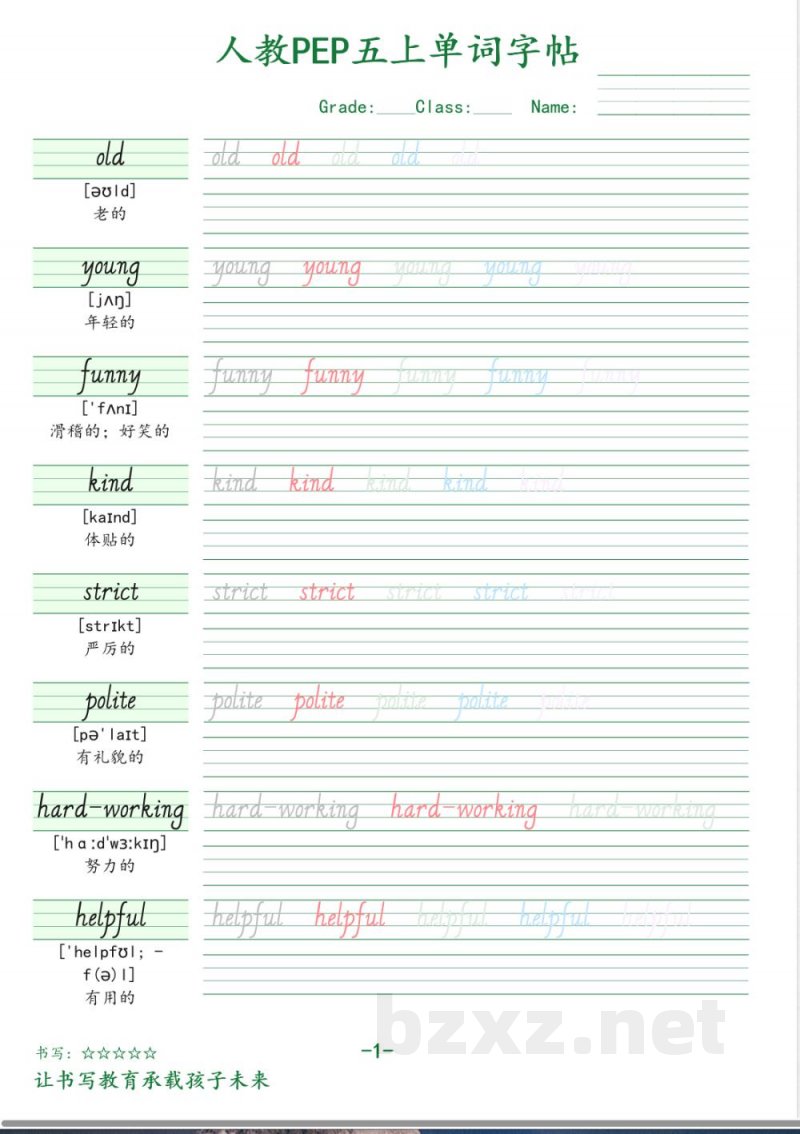 人教PEP五上单词字帖
Grade:____Class:____ Name:
old old old old old old
[əʊld]
老的
young young young young young young
[jʌŋ]
年轻的
funny funny funny funny funny funny
[ˈfʌnɪ]
滑稽的；好笑的
kind kind kind kind kind kind
[kaɪnd]
体贴的
strict strict strict strict strict strict
[strɪkt]
严厉的
polite polite polite polite polite polite
[pəˈlaɪt]
有礼貌的
hard-working hard-working hard-working hard-working
[ˈhɑːdˈwɜːkɪŋ]
努力的
helpful helpful helpful helpful helpful helpful
[ˈhelpfʊl; -
f(ə)l]
有用的
书写：☆☆☆☆☆
-1-
让书写教育承载孩子未来
bzxz.net